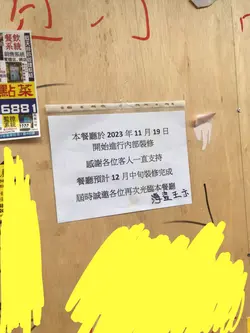 餐飲
系統
點菜
6881
本餐廳於 2023 年 11 月 19 日
開始進行內部裝修
感謝各位客人一直支持
餐廳預計 12 月中旬裝修完成
屆時誠邀各位再次光臨本餐廳